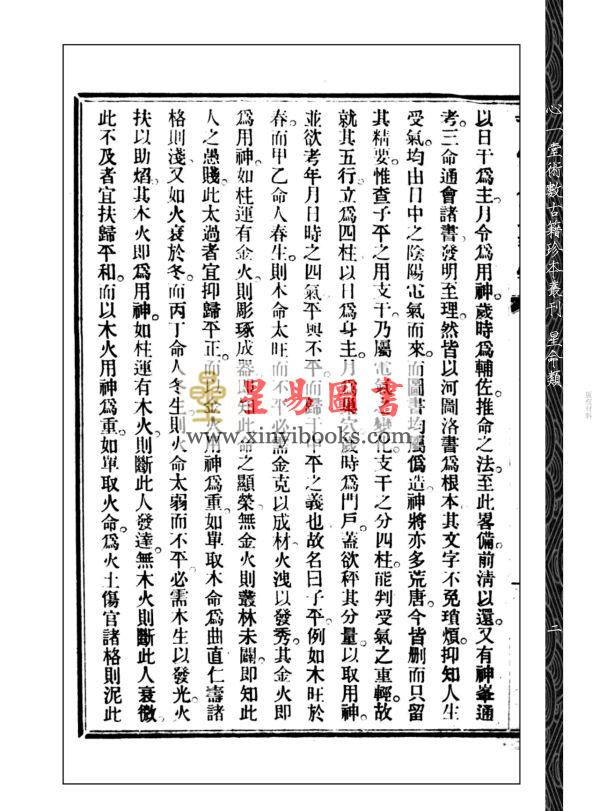 心一堂術數古籍珍本叢刊 星命類
二
以日干爲主。月令爲用神。歲時爲輔佐。推命之法。至此畧備。前清以還。又有神峯通
考。三命通會諸書。發明至理。然皆以河圖洛書爲根本。其文字不免瑣煩。抑知人生
受氣。均由日中之陰陽電氣而來。而圖書均屬僞造。神將亦多荒唐。今皆删而只留
其精要。惟查子平之用支干。乃屬電氣之變化。支干之分四柱。能判受氣之重輕。故
就其五行。立爲四柱。以日爲身主。月爲巢穴。歲時爲門戶。蓋欲秤其分量。以取用神。
並欲考年月日時之四氣平與不平。而歸于中平之義也。故名曰子平。例如木旺於
春。而甲乙命人春生。則木命太旺而不平。必需金克以成材。火洩以發秀。其金火即
爲用神。如柱運有金火。則彫琢成器。即知此命之顯榮。無金火則叢林未闢。即知此
人之愚賤。此太過者宜抑歸平正。而以金火用神爲重。如單取木命爲曲直仁壽諸
格則淺。又如火衰於冬。而丙丁命人冬生。則火命太弱而不平。必需木生以發光。火
扶以助熖。其木火即爲用神。如柱運有木火。則斷此人發達。無木火則斷此人衰微。
此不及者宜扶歸平和。而以木火用神爲重。如單取火命爲火土傷官諸格則泥。此
星易圖書
www.xinyibooks.com
版权材料